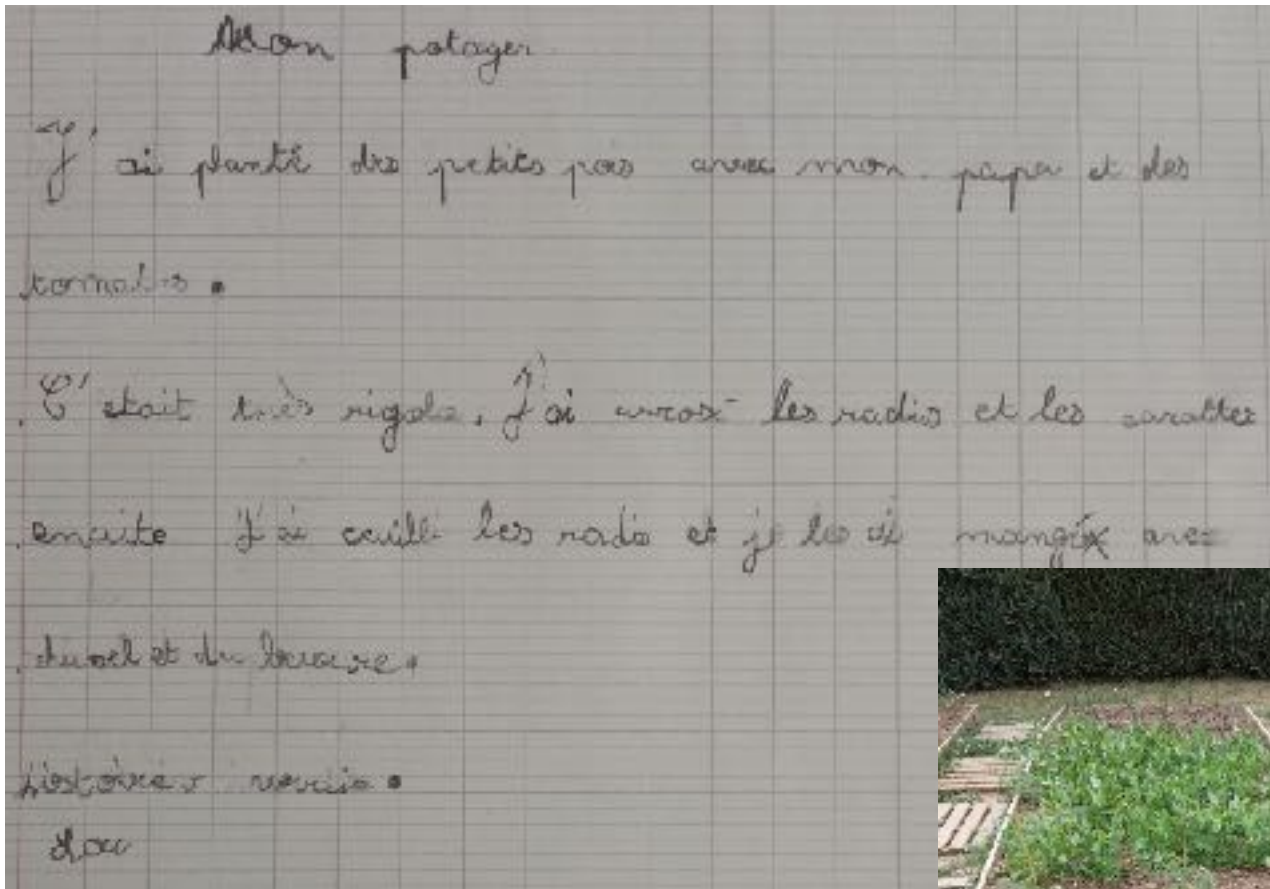 Mon potager
J'ai planté des petits pois avec mon papa et des
tomates.
C'etait très rigolo, J'ai arosé les radis et les carattes
ensuite J'ai ceuilli les radis et je les ai mangé avec
du sel et du beurre.
histoire vraie.
Lou